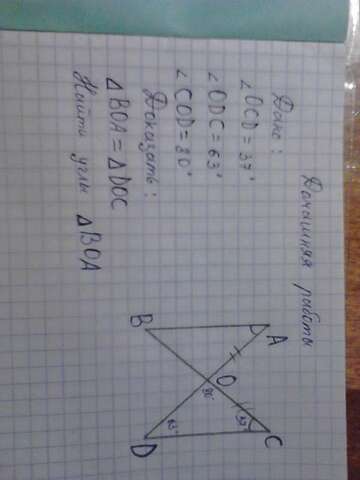 Домашняя работы
Дано:
∠OCD = 37°
∠ODC = 63°
∠COD = 80°
Доказать:
△BOA = △DOC
Найти углы △BOA
A
O
C
80°
37°
B
63°
D